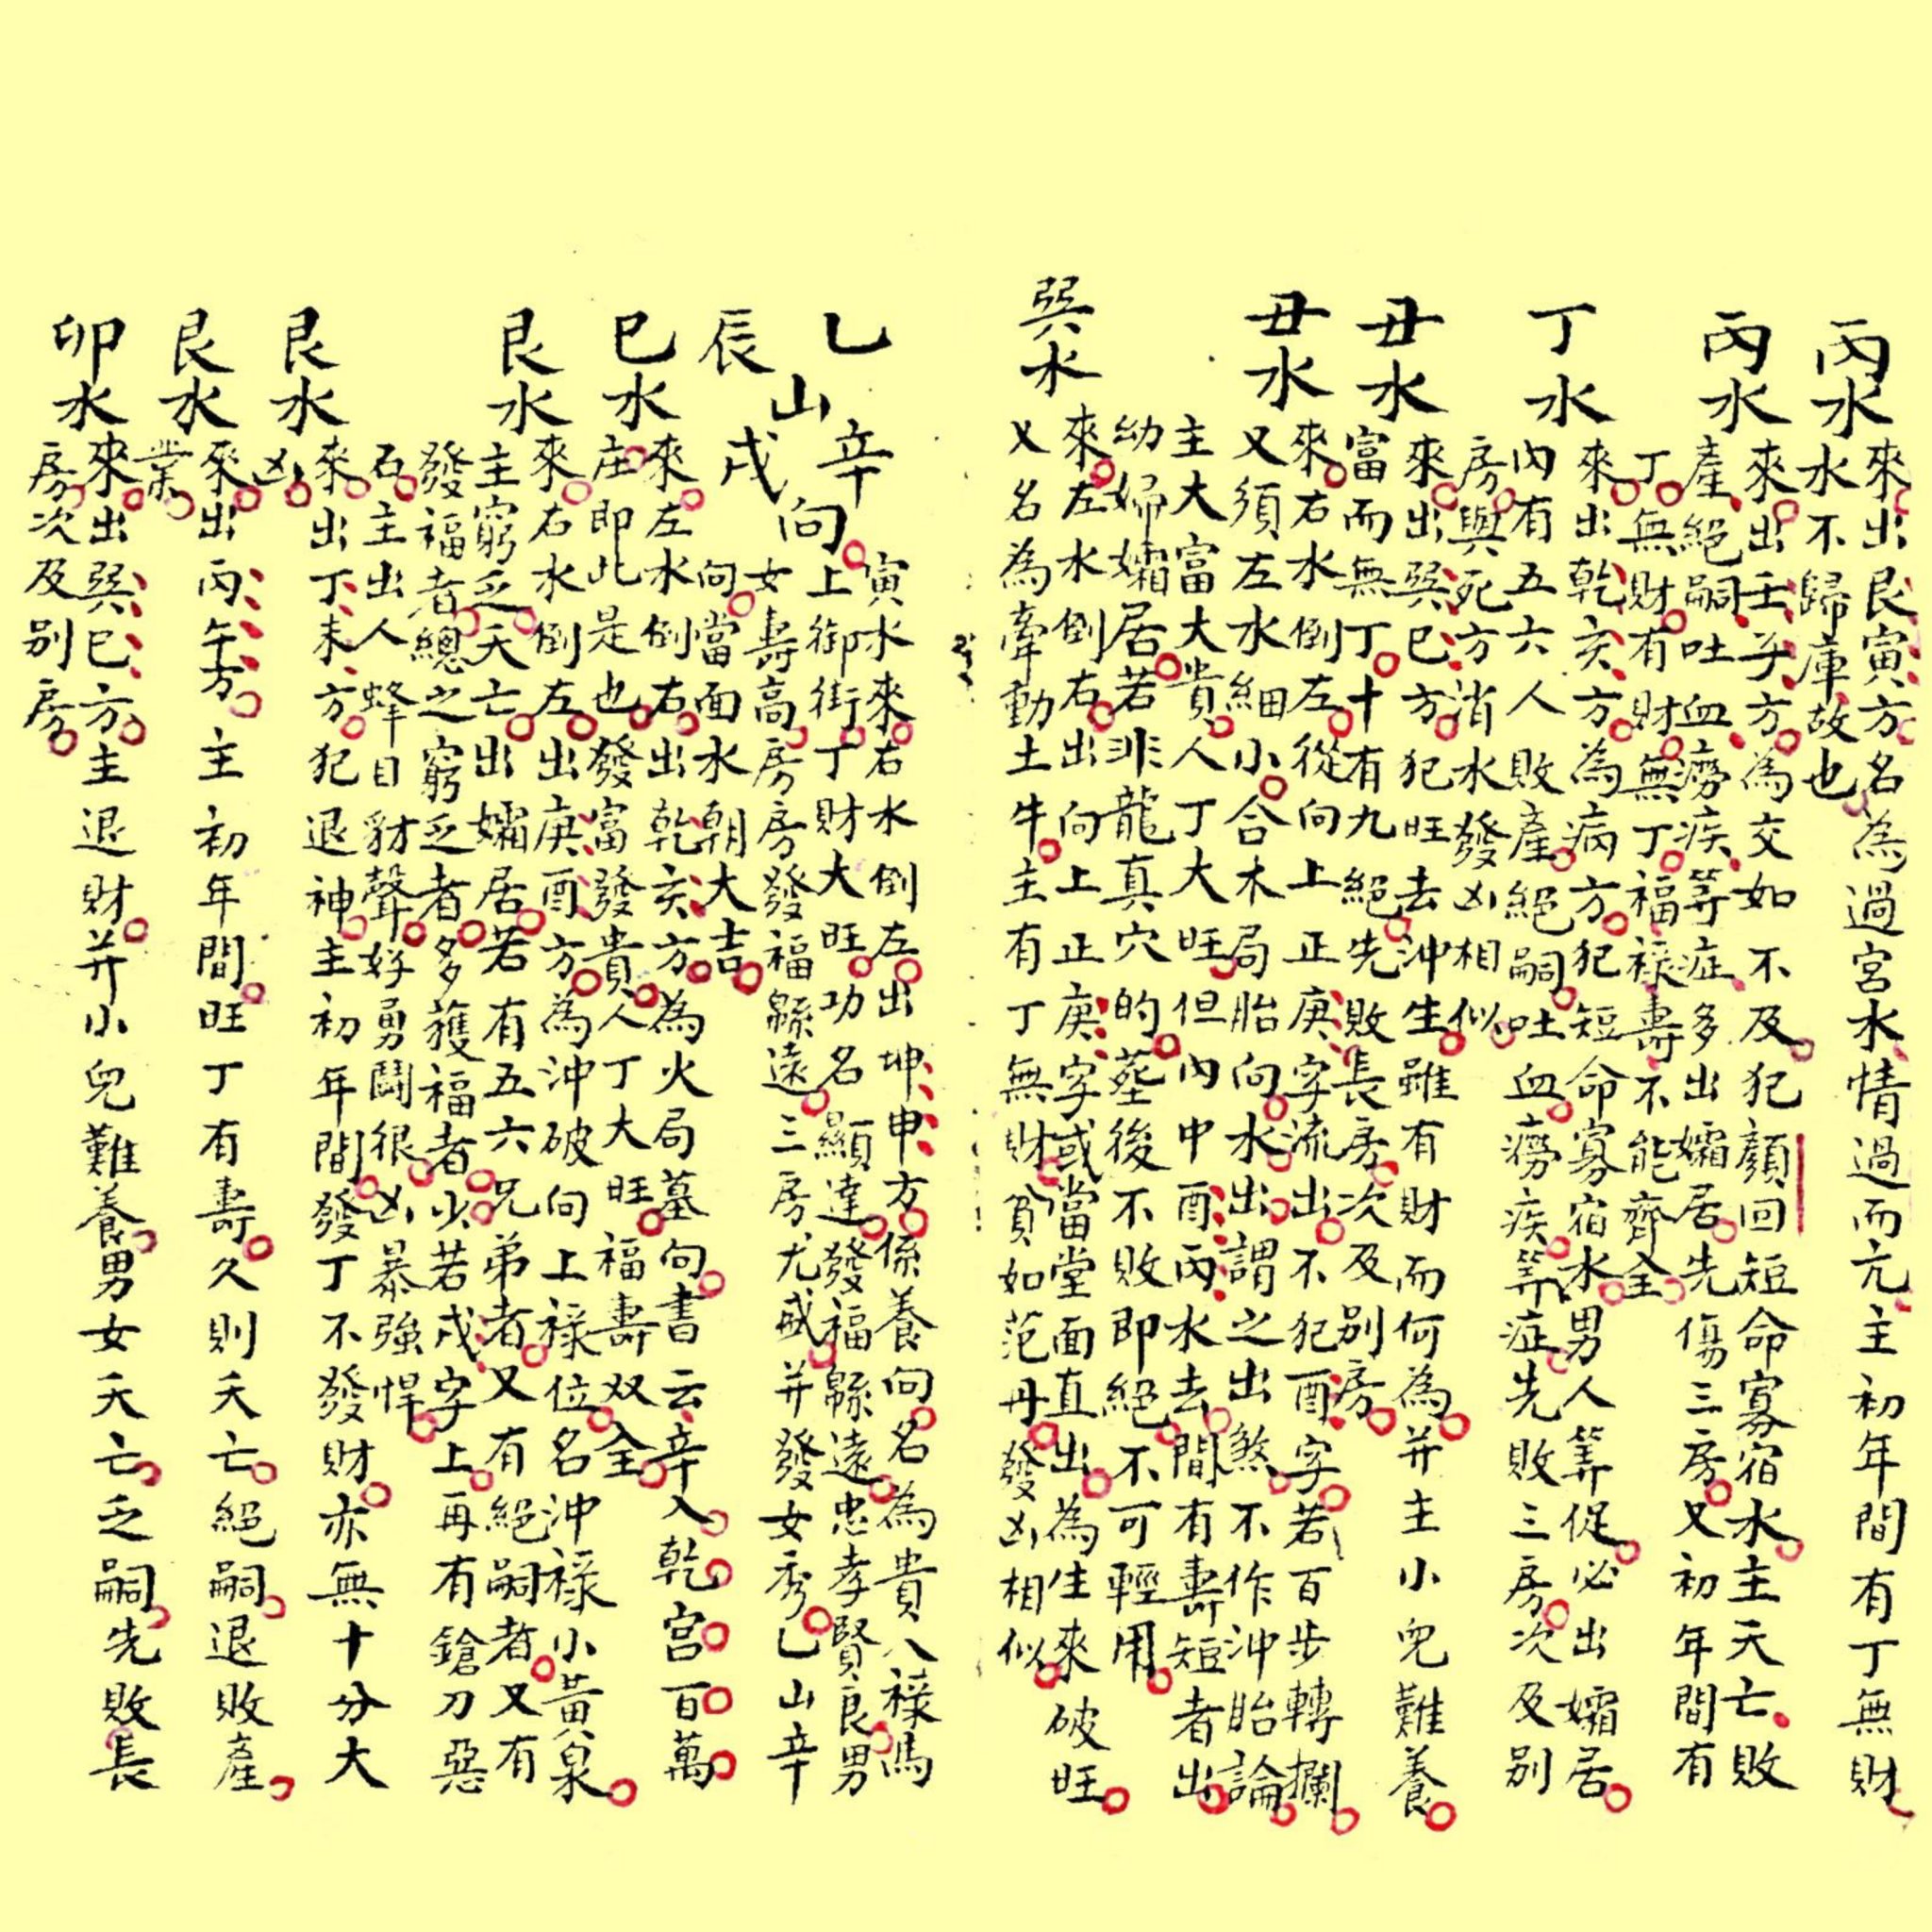 丙水來出艮寅方名為過宮水情過而亢主初年間有丁無財
水不歸庫故也
丙水來出壬子方為交如不及犯顏回短命寡宿水主夭亡敗
產絕嗣吐血癆疾等症多出孀居先傷三房又初年間有
丁無財有財無丁福祿壽不能齊全
丁水來出乾亥方為病方犯短命寡宿水男人等促必出孀居
內有五六人敗產絕嗣吐血癆疾等症先敗三房次及別
房與死方消水發凶相似
丑水來出巽巳方犯旺去沖生雖有財而何為并主小兒難養
富而無丁十有九絕先敗長房次及別房
丑水來右水倒左從向上正庚字流出不犯酉字若百步轉攔
又須左水細小合木局胎向水出謂之出煞不作沖胎論
主大富大貴人丁大旺但內中酉丙水去間有壽短者出
幼婦孀居若非龍真穴的塟後不敗即絕不可輕用
巽水來左水倒右出向上正庚字或當堂面直出為生來破旺
又名為牽動土牛主有丁無財貧如范丹發凶相似
乙山辛向寅水來右水倒左出坤申方係養向名為貴人祿馬
上御街丁財大旺功名顯達發福緜遠忠孝賢良男
女壽高房房發福緜遠三房尤盛并發女秀乙山辛
辰戌向當面水朝大吉
巳水來左水倒右出乾亥方為火局墓向書云辛入乾宮百萬
庄即此是也發富發貴人丁大旺福壽双全
艮水來右水倒左出庚酉方為沖破向上祿位名沖祿小黃泉
主窮乏夭亡出孀居若有五六兄弟者又有絕嗣者又有
發福者總之窮乏者多獲福者少若戌字上再有鎗刀惡
石主出人蜂目豺聲好勇鬪很凶暴強悍
艮水來出丁未方犯退神主初年間發丁不發財亦無十分大
凶
艮水來出丙午方主初年間旺丁有壽久則夭亡絕嗣退敗產
業
卯水來出巽巳方主退財并小兒難養男女夭亡乏嗣先敗長
房次及別房